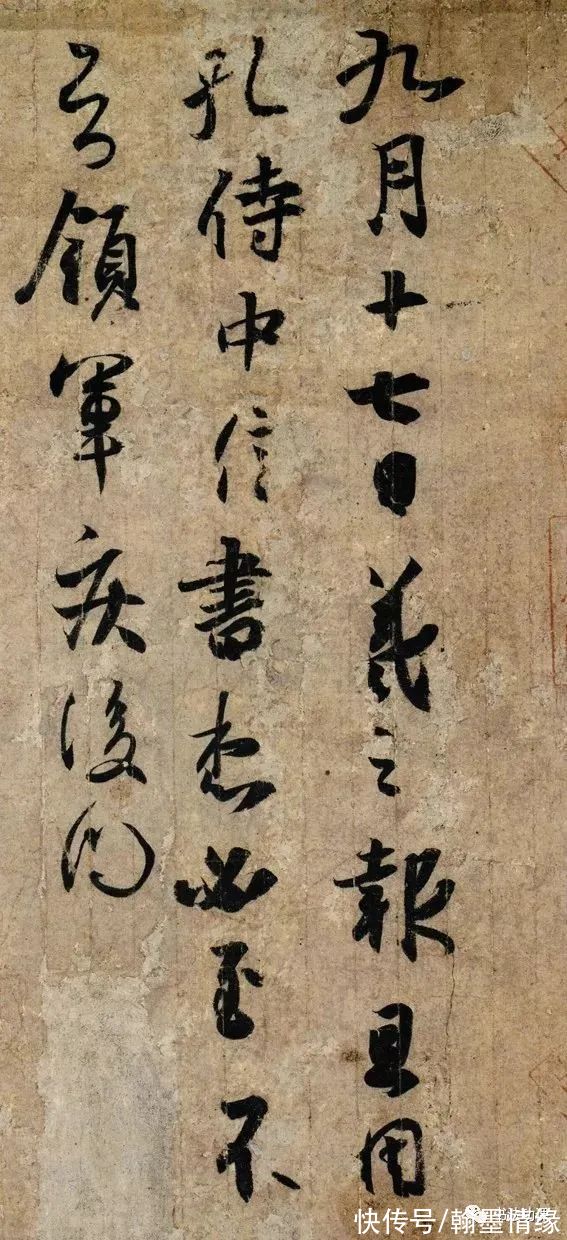 九月十七日羲之報且因
孔侍中信書想必至不
知領軍疾後問
快传号/翰墨情缘